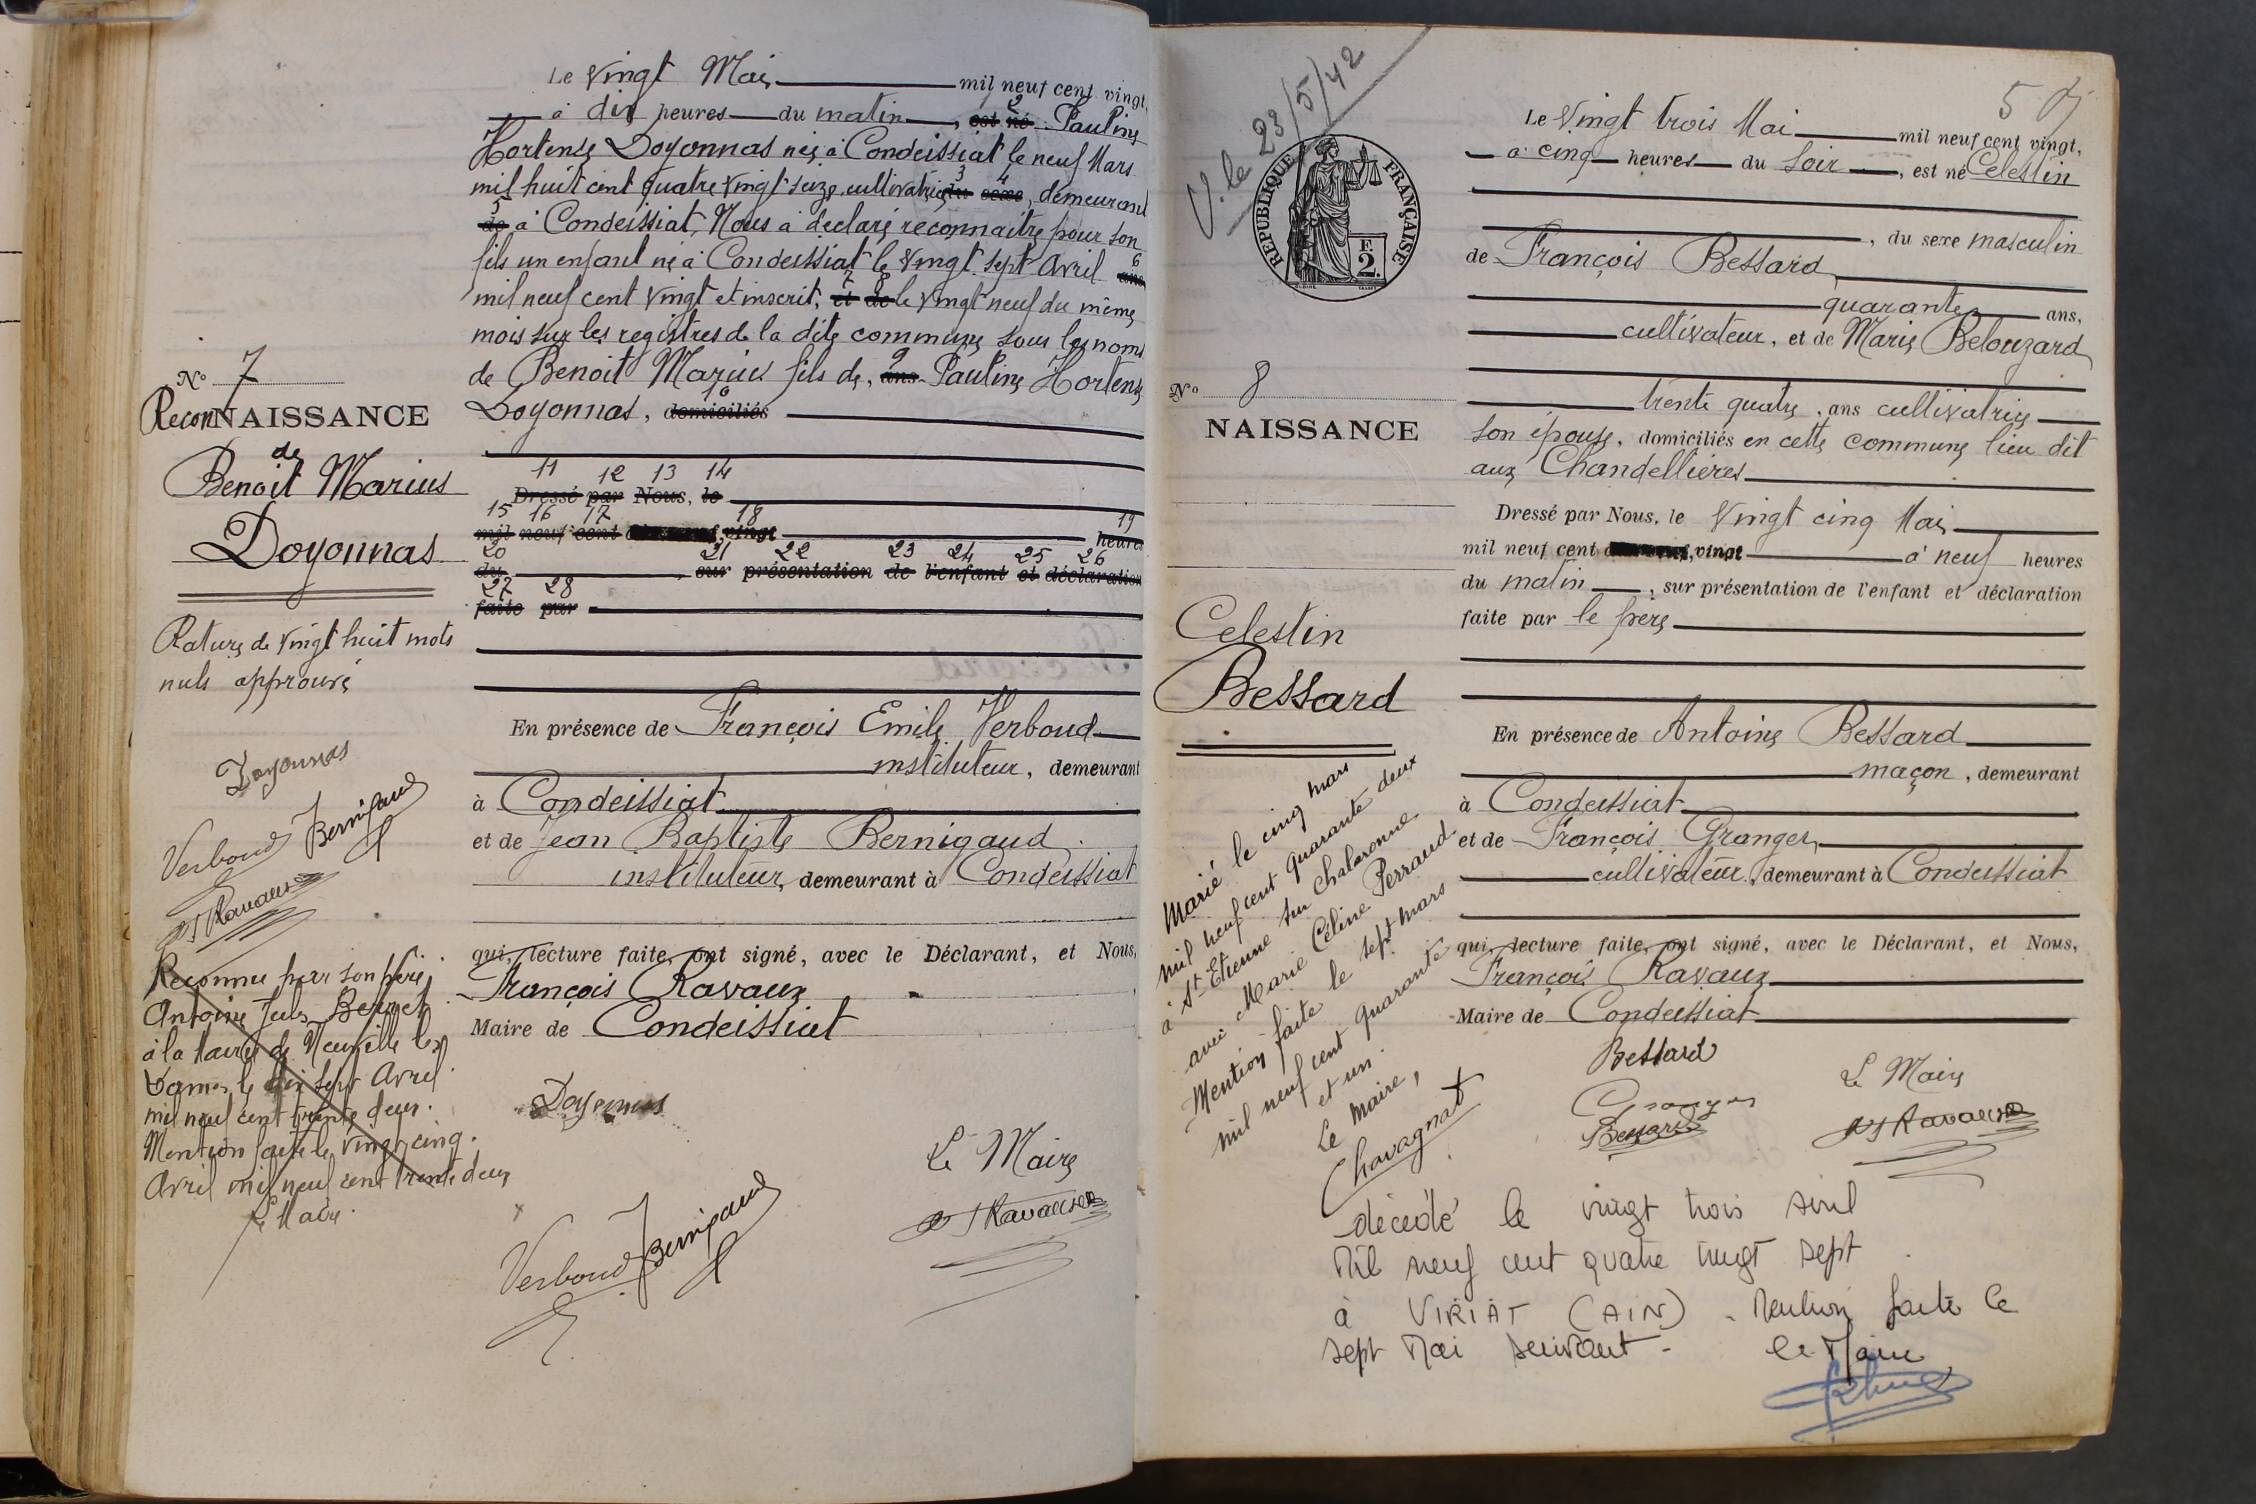 Le vingt Mai mil neuf cent vingt,
à dix heures du matin, est né 2 Pauline
Hortense Doyonnas née à Condeissiat le neuf Mars
mil huit cent quatre vingt seize, cultivatrice du 3 sexe 4, demeurant
de 5 à Condeissiat, Nous à déclaré reconnaitre pour son
fils un enfant né à Condeissiat le vingt sept Avril ans 6
mil neuf cent vingt et inscrit, et 7 de 8 le vingt neuf du même
mois sur les registres de la dite commune sous les noms
de Benoit Marius fils de, ans 9 Pauline Hortense
Doyonnas, domiciliés 10
11 12 13 14
Dressé par Nous, le
15 16 17 18 19
mil neuf cent vingt heures
20 21 22 23 24 25 26
du, sur présentation de l'enfant et déclaration
27 28
faite par
En présence de François Emile Verboud
instituteur, demeurant
à Condeissiat
et de Jean Baptiste Bernigaud
instituteur, demeurant à Condeissiat
qui, lecture faite, ont signé, avec le Déclarant, et Nous,
François Ravaux
Maire de Condeissiat
Doyonnas
Le Maire
Verboud Bernigaud
Ravaux
N° 7
Recon NAISSANCE
de
Benoit Marius
Doyonnas
Rature de vingt huit mots
nuls approuvé
Doyonnas
Verboud Bernigaud
Ravaux
Reconnu par son père
Antoine Jules
à la Mairie de Neuville les
Dames le dix sept Avril
mil neuf cent trente deux.
Mention faite le vingt cinq
Avril mil neuf cent trente deux
Le Maire.
V. le 23/5/42
RÉPUBLIQUE FRANÇAISE
F.
2.
5
Le Vingt trois Mai mil neuf cent vingt,
à cinq heures du soir, est né Celestin
, du sexe masculin
de François Bessard
quarante ans,
cultivateur, et de Marie Belouzard
trente quatre, ans cultivatrice
son épouse, domiciliés en cette commune lieu dit
aux Chandellières
Dressé par Nous, le Vingt cinq Mai
mil neuf cent vingt à neuf heures
du matin, sur présentation de l'enfant et déclaration
faite par le père
En présence de Antoine Bessard
maçon, demeurant
à Condeissiat
et de François Granger
cultivateur, demeurant à Condeissiat
qui, lecture faite, ont signé, avec le Déclarant, et Nous,
François Ravaux
Maire de Condeissiat
Bessard
Le Maire
Granger
Bessard
Ravaux
N° 8
NAISSANCE
Celestin
Bessard
Marié le cinq mars
mil neuf cent quarante deux
à St Etienne sur Chalaronne
avec Marie Céline Perraud
Mention faite le sept mars
mil neuf cent quarante
et un.
Le Maire,
Chavagnat
décédé le vingt trois avril
mil neuf cent quatre vingt sept
à VIRIAT (AIN). Mention faite le
sept Mai suivant - le Maire